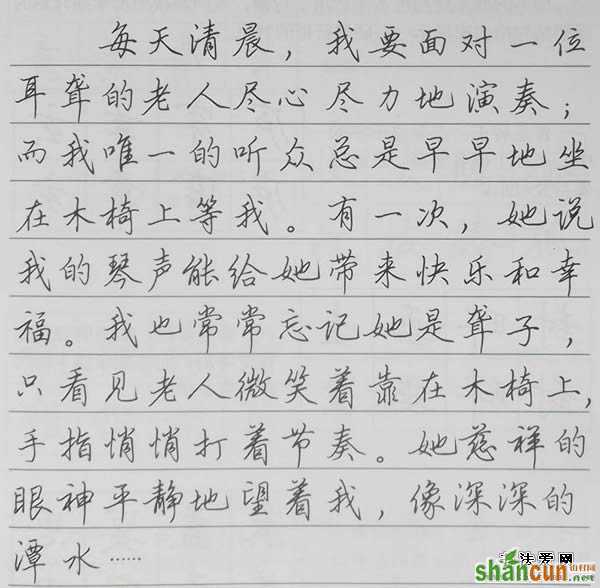 每天清晨，我要面对一位
耳聋的老人尽心尽力地演奏；
而我唯一的听众总是早早地坐
在木椅上等我。有一次，她说
我的琴声能给她带来快乐和幸
福。我也常常忘记她是聋子，
只看见老人微笑着靠在木椅上，
手指悄悄打着节奏。她慈祥的
眼神平静地望着我，像深深的
潭水……
法爱网
shancun
.net